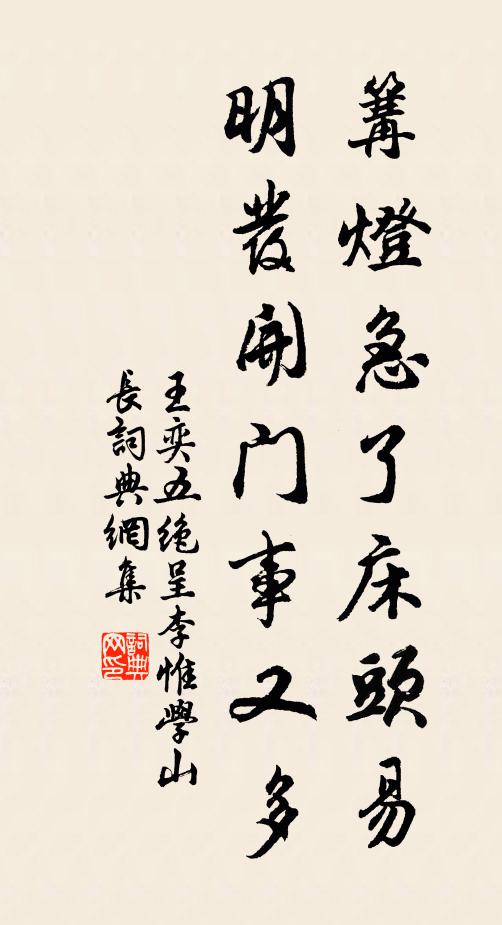 篝燈急了床頭易
明發開門事又多
王奕五絶呈李惟學山
長詞典網集
詞典網印